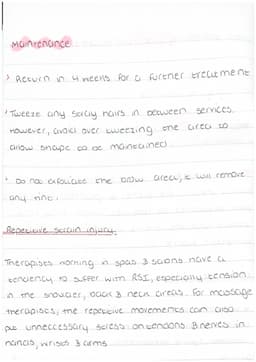 Maintenance
> Return in 4 weeks for a further treatment
• Tweeze any stray hairs in between services.
However, avoid over tweezing the area to
allow shape to be maintained.
• Do not exfoliate the brow area, it will remove
any tint.
Repetitive strain injury.
Therapists working in spas & salons have a
tendency to suffer with RSI, especially tension
in the shoulder, back & neck areas. For massage
therapists, the repetitive movements can also
put unneccessary stress on tendons & nerves in
hands, wrists & arms